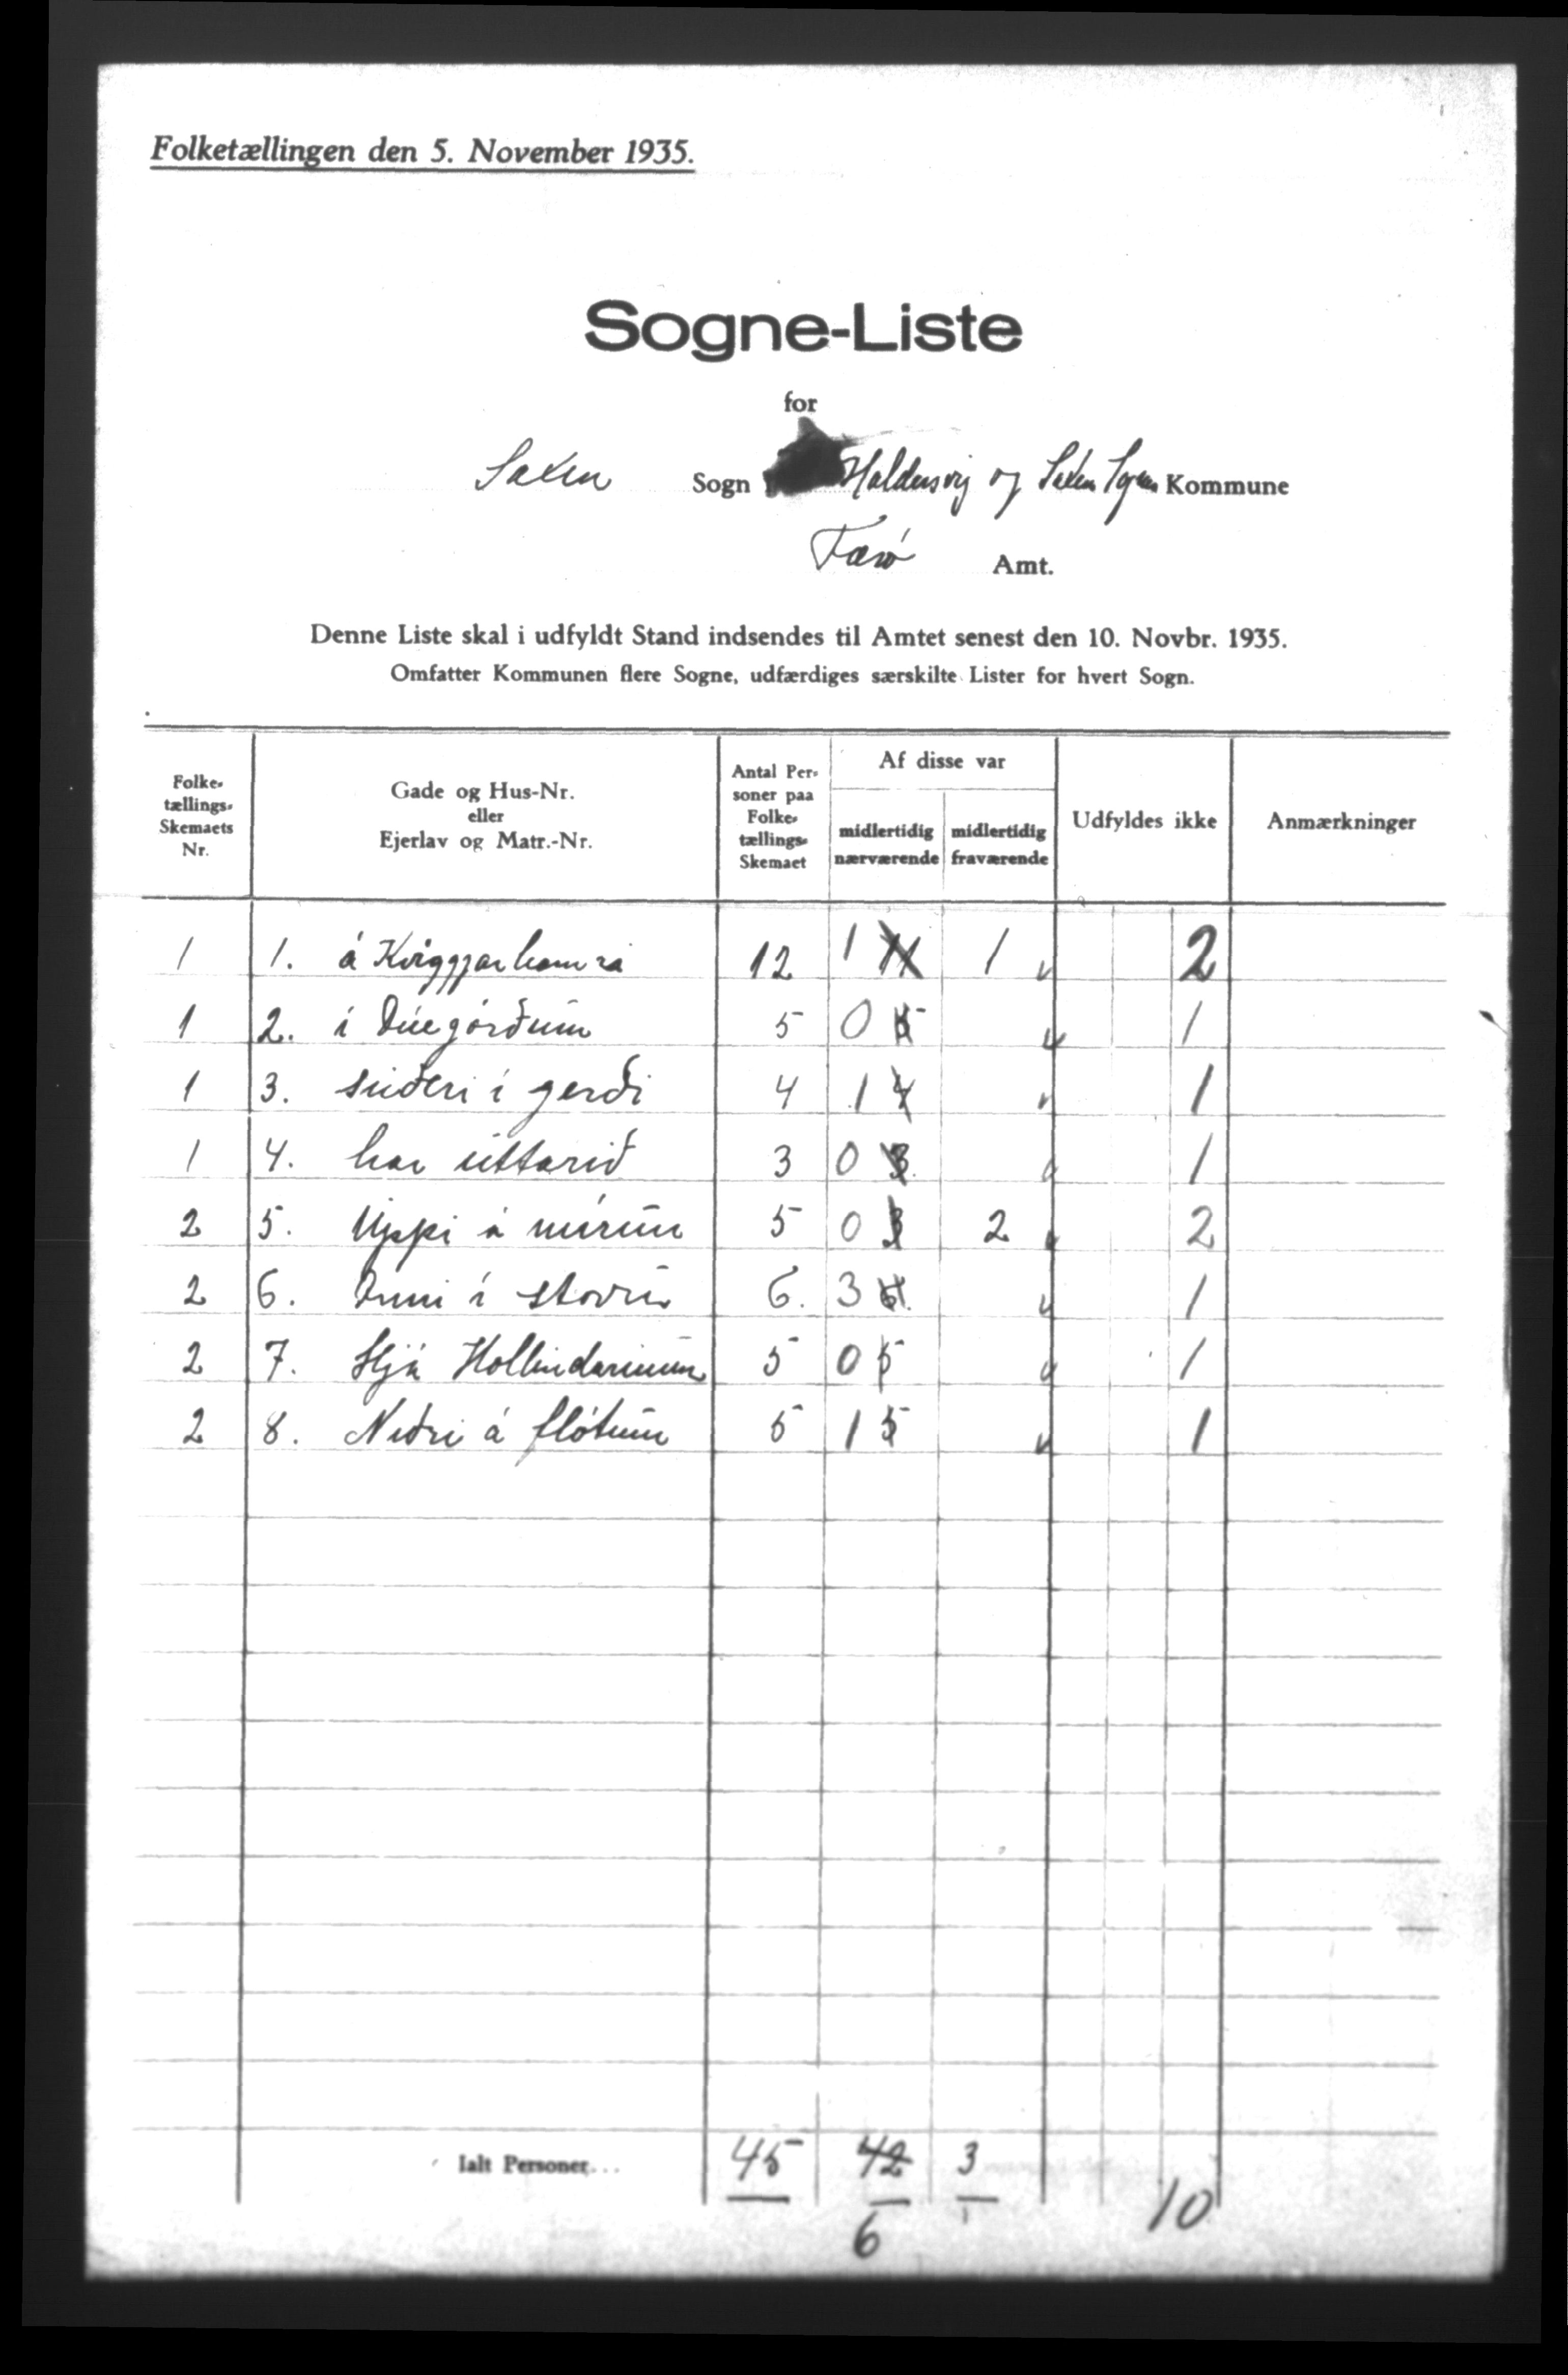 Folketællingen den 5. November 1935.
Sogne-Liste
for
Saxen Sogn Haldersvig og Saxen Sognes Kommune
Færø Amt.
Denne Liste skal i udfyldt Stand indsendes til Amtet senest den 10. Novbr. 1935.
Omfatter Kommunen flere Sogne, udfærdiges særskilte Lister for hvert Sogn.
Folke-tællings-Skemaets Nr. Gade og Hus-Nr. eller Ejerlav og Matr.-Nr. Antal Per-soner paa Folke-tællings-Skemaet Af disse var midlertidig nærværende midlertidig fraværende Udfyldes ikke Anmærkninger
1 1. á Kviggjarhamra 12 1 11 1 2
1 2. í 5 0 5 1
1 3. suðeri í gerði 4 1 4 1
1 4. har úttarið 3 0 3 1
2 5. Uppi á mírún 5 0 3 2 2
2 6. Inni í stovu 6. 3 6 1
2 7. Hjá Hollindarinum 5 0 5 1
2 8. Niðri á fløtum 5 1 5 1
Ialt Personer... 45 42 3 10
6